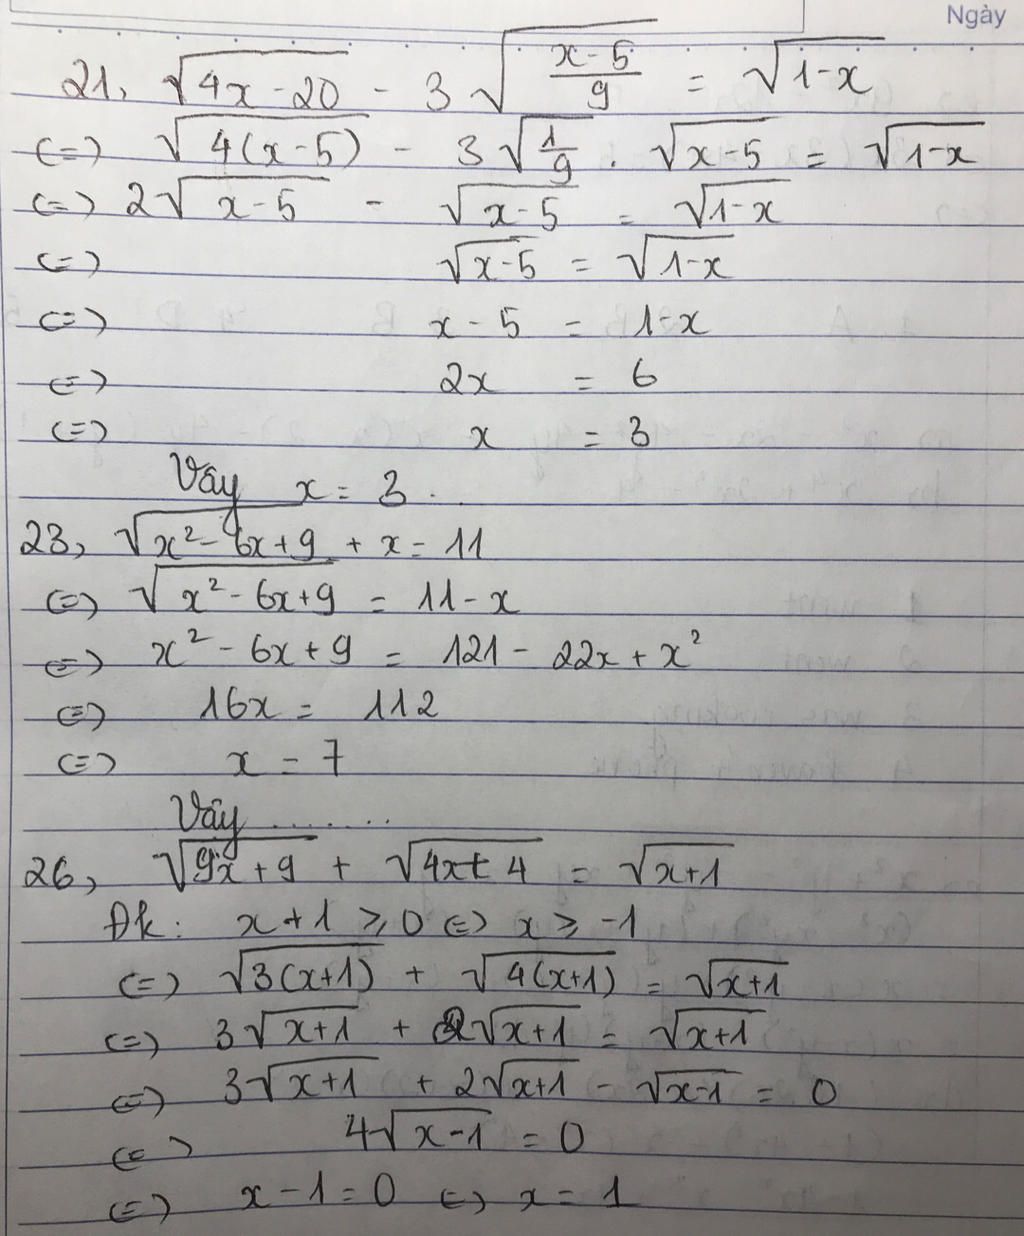 Ngày
21, √(4x-20) - 3√((x-5)/9) = √(1-x)
(=) √(4(x-5)) - 3√(1/9) . √(x-5) = √(1-x)
(=) 2√(x-5) - √(x-5) = √(1-x)
(=) √(x-5) = √(1-x)
(=) x - 5 = 1-x
(=) 2x = 6
(=) x = 3
Vây x = 3.
23, √(x²-6x+9) + x = 11
(=) √(x²-6x+9) = 11-x
(=) x²-6x+9 = 121 - 22x + x²
(=) 16x = 112
(=) x = 7
Vây .......
26, √(9x+9) + √(4x+4) = √(x+1)
Đk: x+1 ≥ 0 (=) x ≥ -1
(=) √(3(x+1)) + √(4(x+1)) = √(x+1)
(=) 3√(x+1) + 2√(x+1) = √(x+1)
(=) 3√(x+1) + 2√(x+1) - √(x-1) = 0
(=) 4√(x-1) = 0
(=) x-1 = 0 (=) x = 1